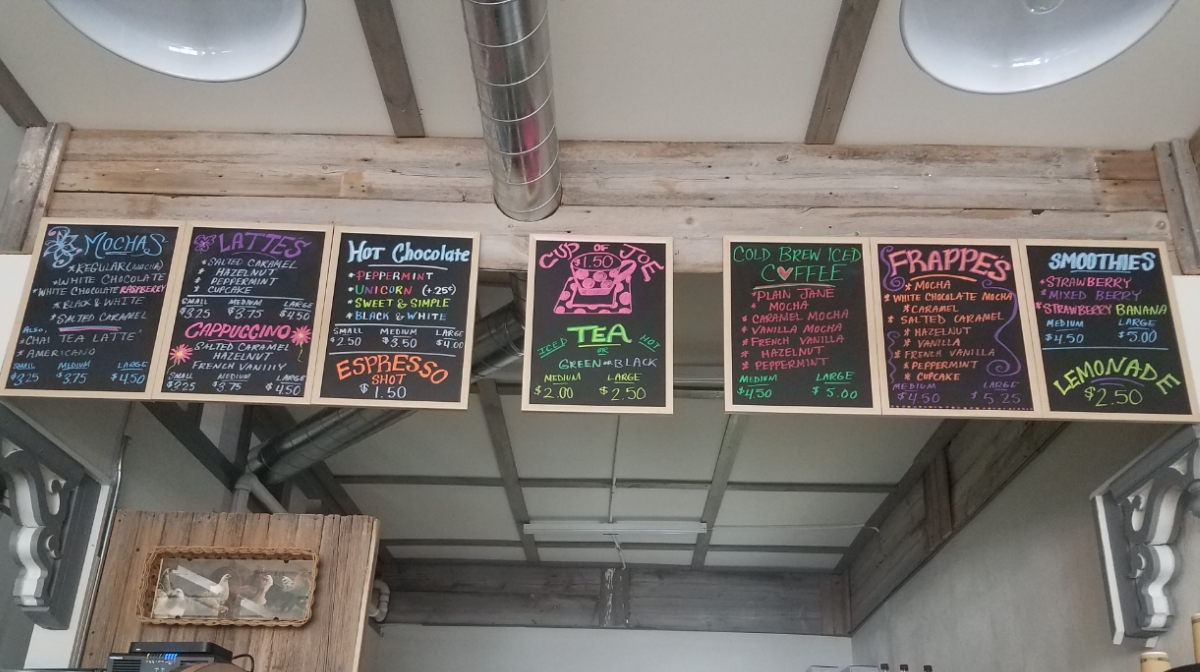 MOCHAS
*REGULAR (MOCHA)
*WHITE CHOCOLATE
*WHITE CHOCOLATE RASPBERRY
*BLACK & WHITE
*SALTED CARAMEL
ALSO,
*CHAI TEA LATTE
*AMERICANO
SMALL MEDIUM LARGE
$3.25 $3.75 $4.50
LATTES
*SALTED CARAMEL
* HAZELNUT
* PEPPERMINT
* CUPCAKE
SMALL MEDIUM LARGE
$3.25 $3.75 $4.50
CAPPUCCINO
SALTED CARAMEL
HAZELNUT
FRENCH VANILLY
SMALL MEDIUM LARGE
$3.25 $3.75 $4.50
HOT CHOCOLATE
*PEPPERMINT
*UNICORN (+25¢)
*SWEET & SIMPLE
*BLACK & WHITE
SMALL MEDIUM LARGE
$2.50 $3.50 $4.00
ESPRESSO
SHOT
$1.50
CUP OF JOE
$1.50
TEA
ICED OR HOT
GREEN OR BLACK
MEDIUM LARGE
$2.00 $2.50
COLD BREW ICED
COFFEE
*PLAIN JANE
* MOCHA
* CARAMEL MOCHA
* VANILLA MOCHA
* FRENCH VANILLA
* HAZELNUT
* PEPPERMINT
MEDIUM LARGE
$4.50 $5.00
FRAPPE'S
* MOCHA
* WHITE CHOCOLATE MOCHA
* CARAMEL
* SALTED CARAMEL
* HAZELNUT
* VANILLA
* FRENCH VANILLA
* PEPPERMINT
* CUPCAKE
MEDIUM LARGE
$4.50 $5.25
SMOOTHIES
*STRAWBERRY
*MIXED BERRY
*STRAWBERRY BANANA
MEDIUM LARGE
$4.50 $5.00
LEMONADE
$2.50